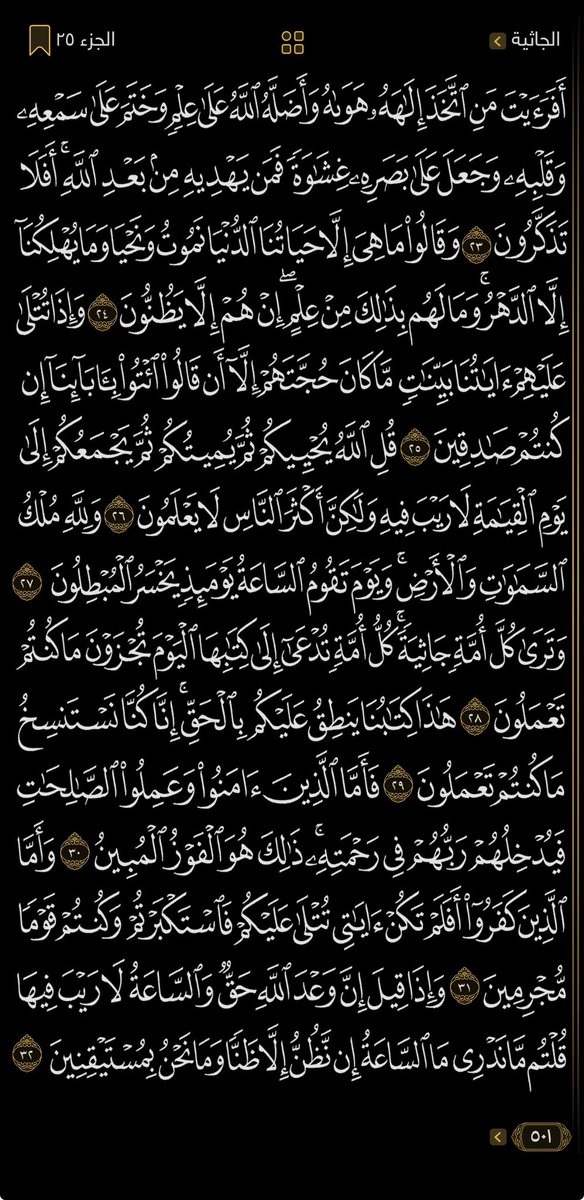 الجاثية
الجزء ٢٥
أَفَرَءَيْتَ مَنِ ٱتَّخَذَ إِلَٰهَهُۥ هَوَىٰهُ وَأَضَلَّهُ ٱللَّهُ عَلَىٰ عِلْمٍ وَخَتَمَ عَلَىٰ سَمْعِهِۦ
وَقَلْبِهِۦ وَجَعَلَ عَلَىٰ بَصَرِهِۦ غِشَٰوَةً فَمَن يَهْدِيهِ مِنۢ بَعْدِ ٱللَّهِ ۚ أَفَلَا
تَذَكَّرُونَ ٢٣ وَقَالُوا۟ مَا هِىَ إِلَّا حَيَاتُنَا ٱلدُّنْيَا نَمُوتُ وَنَحْيَا وَمَا يُهْلِكُنَآ
إِلَّا ٱلدَّهْرُ ۚ وَمَا لَهُم بِذَٰلِكَ مِنْ عِلْمٍ ۖ إِنْ هُمْ إِلَّا يَظُنُّونَ ٢٤ وَإِذَا تُتْلَىٰ
عَلَيْهِمْ ءَايَٰتُنَا بَيِّنَٰتٍ مَّا كَانَ حُجَّتَهُمْ إِلَّآ أَن قَالُوا۟ ٱئْتُوا۟ بِـَٔابَآئِنَآ إِن
كُنتُمْ صَٰدِقِينَ ٢٥ قُلِ ٱللَّهُ يُحْيِيكُمْ ثُمَّ يُمِيتُكُمْ ثُمَّ يَجْمَعُكُمْ إِلَىٰ
يَوْمِ ٱلْقِيَٰمَةِ لَا رَيْبَ فِيهِ وَلَٰكِنَّ أَكْثَرَ ٱلنَّاسِ لَا يَعْلَمُونَ ٢٦ وَلِلَّهِ مُلْكُ
ٱلسَّمَٰوَٰتِ وَٱلْأَرْضِ ۚ وَيَوْمَ تَقُومُ ٱلسَّاعَةُ يَوْمَئِذٍ يَخْسَرُ ٱلْمُبْطِلُونَ ٢٧
وَتَرَىٰ كُلَّ أُمَّةٍ جَاثِيَةً ۚ كُلُّ أُمَّةٍ تُدْعَىٰٓ إِلَىٰ كِتَٰبِهَا ٱلْيَوْمَ تُجْزَوْنَ مَا كُنتُمْ
تَعْمَلُونَ ٢٨ هَٰذَا كِتَٰبُنَا يَنطِقُ عَلَيْكُم بِٱلْحَقِّ ۚ إِنَّا كُنَّا نَسْتَنسِخُ
مَا كُنتُمْ تَعْمَلُونَ ٢٩ فَأَمَّا ٱلَّذِينَ ءَامَنُوا۟ وَعَمِلُوا۟ ٱلصَّٰلِحَٰتِ
فَيُدْخِلُهُمْ رَبُّهُمْ فِى رَحْمَتِهِۦ ۚ ذَٰلِكَ هُوَ ٱلْفَوْزُ ٱلْمُبِينُ ٣٠ وَأَمَّا
ٱلَّذِينَ كَفَرُوٓا۟ أَفَلَمْ تَكُنْ ءَايَٰتِى تُتْلَىٰ عَلَيْكُمْ فَٱسْتَكْبَرْتُمْ وَكُنتُمْ قَوْمًا
مُّجْرِمِينَ ٣١ وَإِذَا قِيلَ إِنَّ وَعْدَ ٱللَّهِ حَقٌّ وَٱلسَّاعَةُ لَا رَيْبَ فِيهَا
قُلْتُم مَّا نَدْرِى مَا ٱلسَّاعَةُ إِن نَّظُنُّ إِلَّا ظَنًّا وَمَا نَحْنُ بِمُسْتَيْقِنِينَ ٣٢
٥٠١